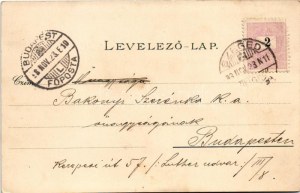 LEVELEZŐ-LAP.
BUDAPEST
FŐPOSTA
2
Bakonyi Szerénke k. a.
önagyságának
Budapesten
Kerepesi út 57. / Luther udvar / III/
8.